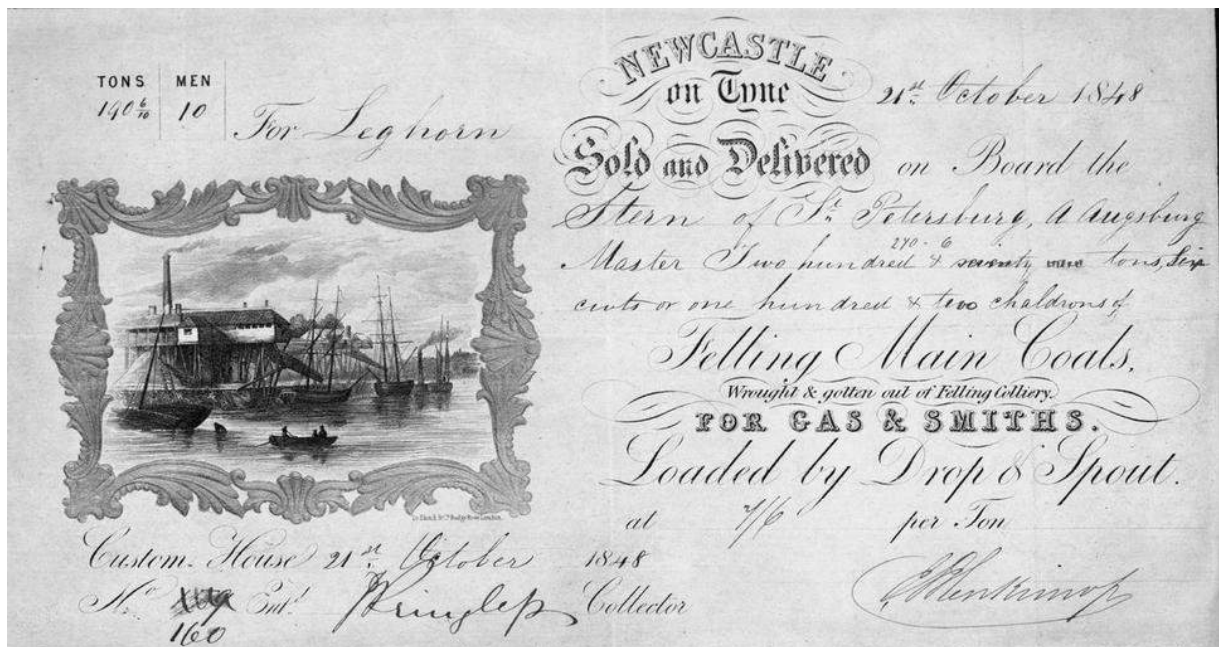 TONS MEN
190 6/10 10
For Leghorn
NEWCASTLE
on Tyne
21st October 1848
Sold and Delivered on Board the
Stern of St Petersburg, A Augsburg
270 - 6
Master Two hundred & seventy tons, Six
cwts or one hundred & two chaldrons of
Felling Main Coals.
Wrought & gotten out of Felling Colliery.
FOR GAS & SMITHS.
Loaded by Drop & Spout.
at 7/6 per Ton
Custom House 21st October 1848
No Entd Collector
160